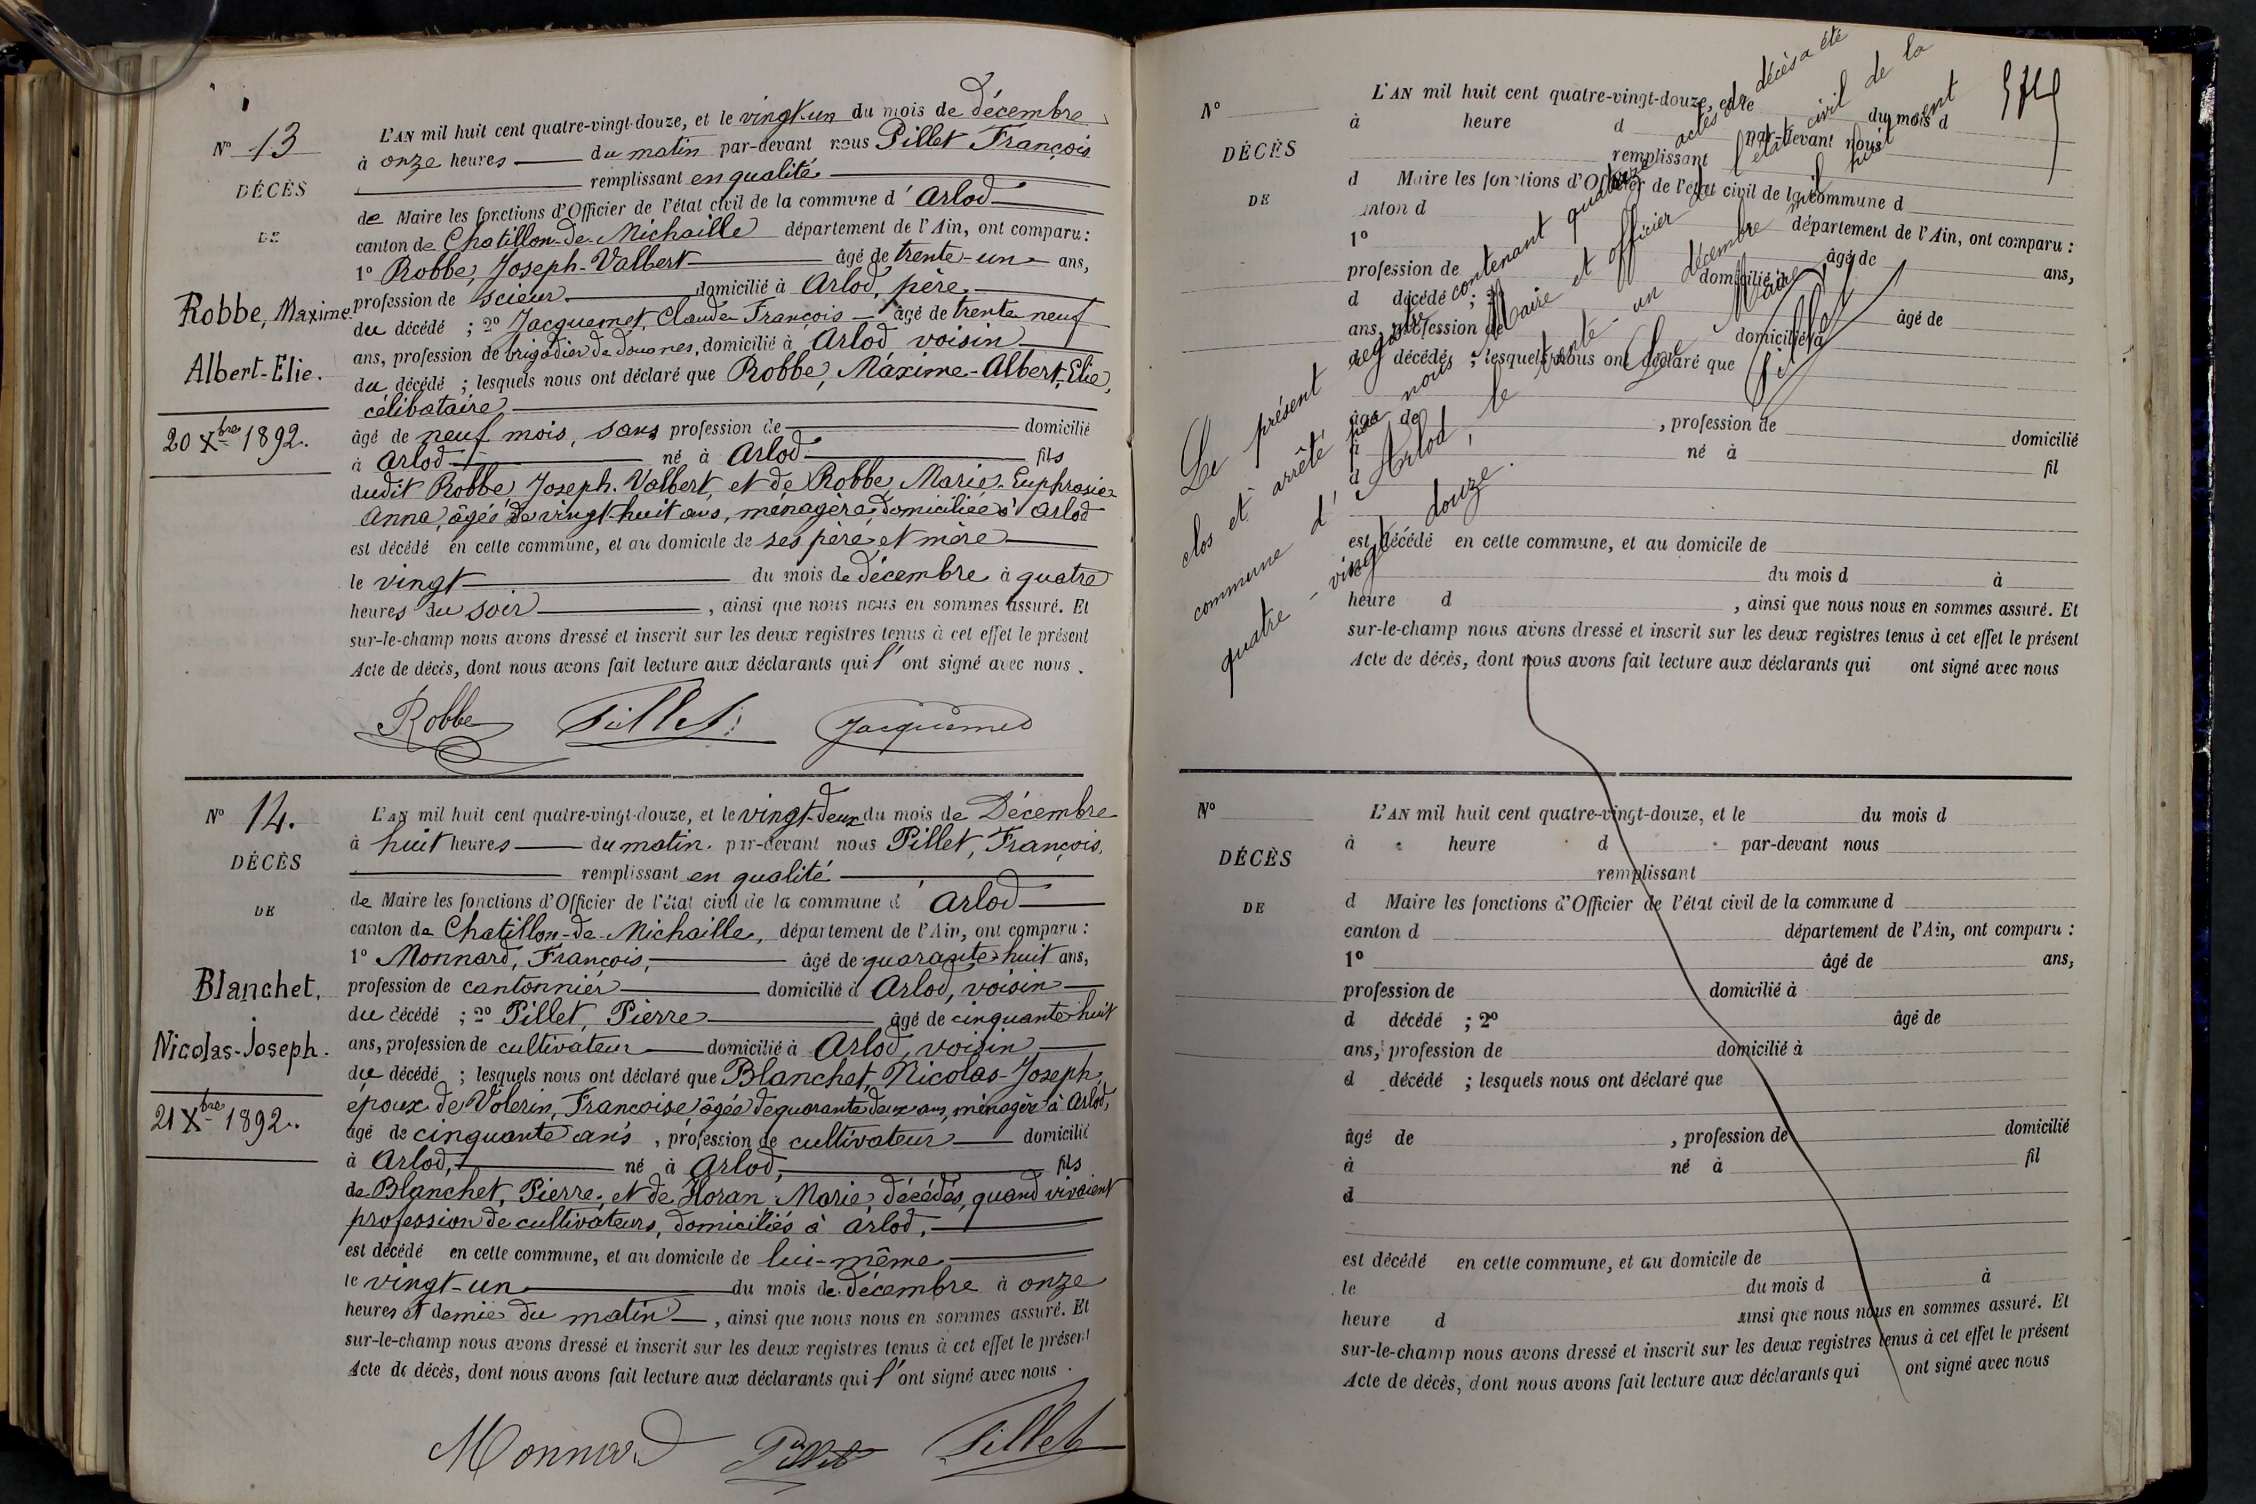 N° 13
DÉCÈS
DE
Robbe, Maxime
Albert-Elie.
20 Xbre 1892.
L'AN mil huit cent quatre-vingt-douze, et le vingt-un du mois de décembre
à onze heures du matin par-devant nous Pillet François
remplissant en qualité
de Maire les fonctions d'Officier de l'état civil de la commune d'Arlod
canton de Chatillon-de-Michaille département de l'Ain, ont comparu :
1° Robbe, Joseph-Valbert âgé de trente-un ans,
profession de scieur domicilié à Arlod, père
du décédé ; 2° Jacquemet, Claude François âgé de trente neuf
ans, profession de brigadier de douanes, domicilié à Arlod voisin
du décédé ; lesquels nous ont déclaré que Robbe, Maxime-Albert, Elie,
célibataire
âgé de neuf mois, sans profession de domicilié
à Arlod né à Arlod fils
dudit Robbe, Joseph-Valbert, et de Robbe, Marie-Euphrasie
Anna, âgés de vingt-huit ans, ménagère, domiciliée à Arlod
est décédé en cette commune, et au domicile de ses père et mère
le vingt du mois de décembre à quatre
heures du soir, ainsi que nous nous en sommes assuré. Et
sur-le-champ nous avons dressé et inscrit sur les deux registres tenus à cet effet le présent
Acte de décès, dont nous avons fait lecture aux déclarants qui l'ont signé avec nous.
Robbe Pillet Jacquemet
N° 14.
DÉCÈS
DE
Blanchet,
Nicolas-Joseph.
21 Xbre 1892.
L'AN mil huit cent quatre-vingt-douze, et le vingt-deux du mois de Décembre
à huit heures du matin par-devant nous Pillet, François,
remplissant en qualité
de Maire les fonctions d'Officier de l'état civil de la commune d'Arlod
canton de Chatillon-de-Michaille, département de l'Ain, ont comparu :
1° Monnard, François, âgé de quarante-huit ans,
profession de cantonnier domicilié à Arlod, voisin
du décédé ; 2° Pillet, Pierre âgé de cinquante-huit
ans, profession de cultivateur domicilié à Arlod, voisin
du décédé ; lesquels nous ont déclaré que Blanchet, Nicolas-Joseph,
époux de Volerin, Françoise, âgée de quarante deux ans, ménagère à Arlod,
âgé de cinquante ans, profession de cultivateur domicilié
à Arlod, né à Arlod, fils
de Blanchet, Pierre, et de Horan, Marie, décédés, quand vivaient
profession de cultivateurs, domiciliés à Arlod,
est décédé en cette commune, et au domicile de lui-même
le vingt-un du mois de décembre à onze
heures et demie du matin, ainsi que nous nous en sommes assuré. Et
sur-le-champ nous avons dressé et inscrit sur les deux registres tenus à cet effet le présent
Acte de décès, dont nous avons fait lecture aux déclarants qui l'ont signé avec nous.
Monnard Pillet Pillet
N°
DÉCÈS
DE
L'AN mil huit cent quatre-vingt-douze, et le du mois d
à heure d par-devant nous
remplissant
d Maire les fonctions d'Officier de l'état civil de la commune d
canton d département de l'Ain, ont comparu :
1° âgé de ans,
profession de domicilié à
d décédé ; 2° âgé de
ans, profession de domicilié à
d décédé ; lesquels nous ont déclaré que
âgé de , profession de domicilié
à né à fil
d
est décédé en cette commune, et au domicile de
le du mois d à
heure d , ainsi que nous nous en sommes assuré. Et
sur-le-champ nous avons dressé et inscrit sur les deux registres tenus à cet effet le présent
Acte de décès, dont nous avons fait lecture aux déclarants qui ont signé avec nous
Le présent registre contenant quatorze actes de décès a été
clos et arrêté par nous Maire et officier de l'état civil de la
commune d'Arlod, le trente-un décembre mil huit cent
quatre-vingt douze.
Le Maire,
Pillet
N°
DÉCÈS
DE
L'AN mil huit cent quatre-vingt-douze, et le du mois d
à heure d par-devant nous
remplissant
d Maire les fonctions d'Officier de l'état civil de la commune d
canton d département de l'Ain, ont comparu :
1° âgé de ans,
profession de domicilié à
d décédé ; 2° âgé de
ans, profession de domicilié à
d décédé ; lesquels nous ont déclaré que
âgé de , profession de domicilié
à né à fil
d
est décédé en cette commune, et au domicile de
le du mois d à
heure d ainsi que nous nous en sommes assuré. Et
sur-le-champ nous avons dressé et inscrit sur les deux registres tenus à cet effet le présent
Acte de décès, dont nous avons fait lecture aux déclarants qui ont signé avec nous